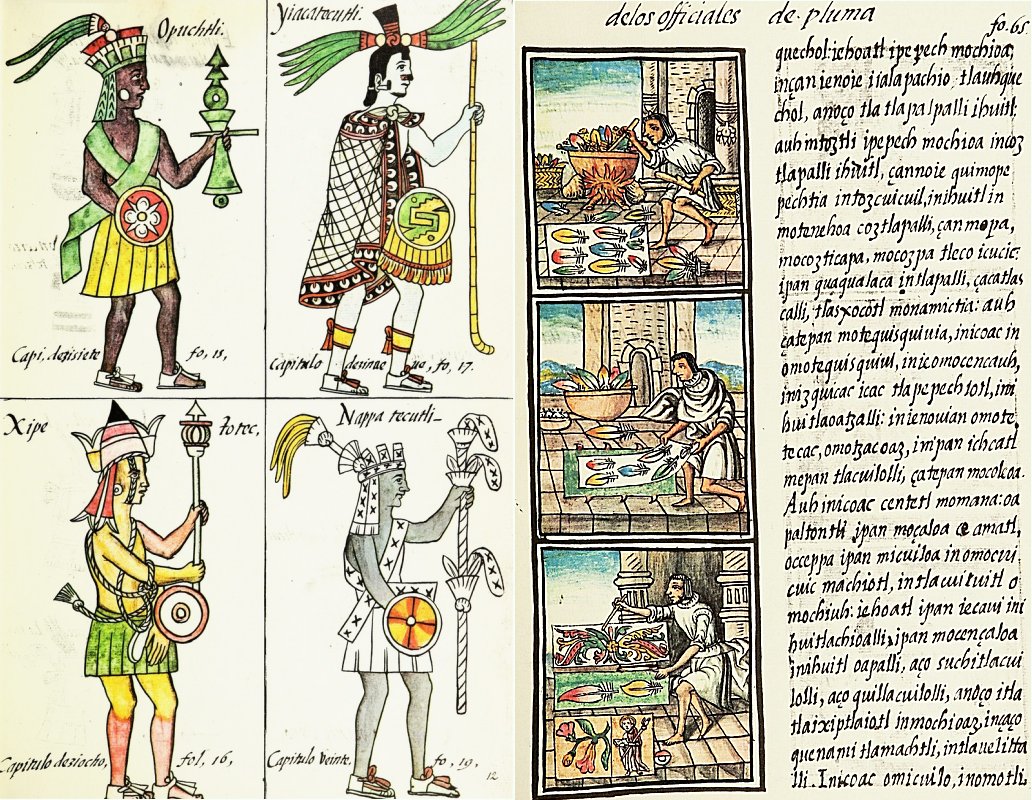 Opuchtli.
Capi, dezisiete fo, 15,
Yiacatecutli.
Capitulo fo, 17.
Xipe totec,
Capitulo desiocho, fol, 16,
Nappa tecutli
Capitulo Veinte. fo, 19,
12
delos officiales de pluma
fo. 65
quechol: iehoatl ipepech mochioa,
inçan ienoie itlapachio, tlauhque
chol, anoço tla tlapalpalli ihuitl:
auh intoztli ipepech mochioa incoz
tlapalli ihuitl, çannoie quimope
pechtia intozcuicuil, inihuitl in
motenehoa coztlapalli, çan mopa,
mocozticapa, mocozpa tleco icucic:
ipan quaqualaca intlapalli, çacatlas
calli, tlasxocotl monamictia: auh
çatepan motequisquivia, inicoac in
omotequisquiui, inicomocencauh,
inizquicac icac tlapepechiotl, ini
huitlaoatzalli: inienouian omote
tecac, omotzacoaz, inipan ichcatl
mepan tlacuilolli, çatepan mocolcoa.
Auh inicoac centetl momana: oa
paltontli ipan moçaloa ce amatl,
occeppa ipan micuiloa in omocui
cuic machiotl, in tlacuicuitl o
mochiuh: iehoatl ipan iecaui ini
huitlachioalli, ipan mocençaloa
inihuitl oapalli, aço suchitlacui
lolli, aço quillacuilolli, anoço itla
tlaixiptlaiotl inmochioaz, inçaço
quenami tlamachtli, intlauelitta
lli. Inicoac omicuilo, inomotli